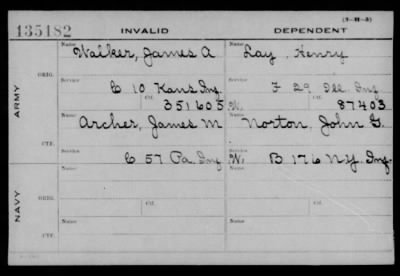 135182 INVALID DEPENDENT (3-M-5)
Name Walker, James A Name Lay, Henry
ORIG. Service C 10 Kans Inf Service F 29 Ill Inf
ARMY
Ctf. 351605 W. Ctf. 87403
CTF. Name Archer, James M Name Norton, John G.
Service C 57 Pa Inf Service W. B 176 N.Y. Inf.
Name Name
ORIG.
Ctf. Ctf.
NAVY
Name Name
CTF.